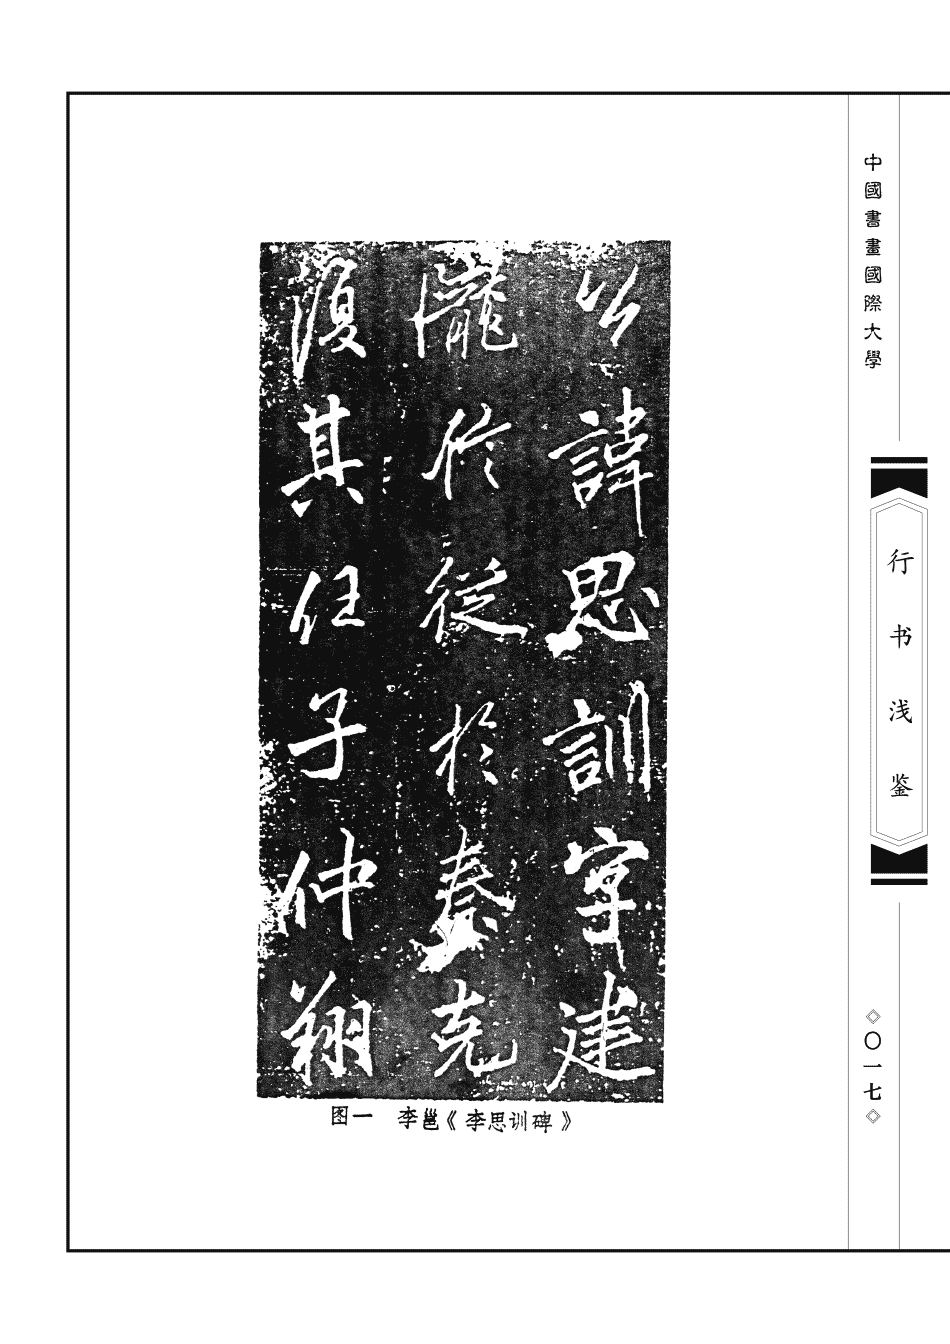 中國書畫國際大學
行书浅鉴
〇一七
公諱思訓字建
隴從於秦克
復其任子仲翔
图一 李邕《李思训碑》